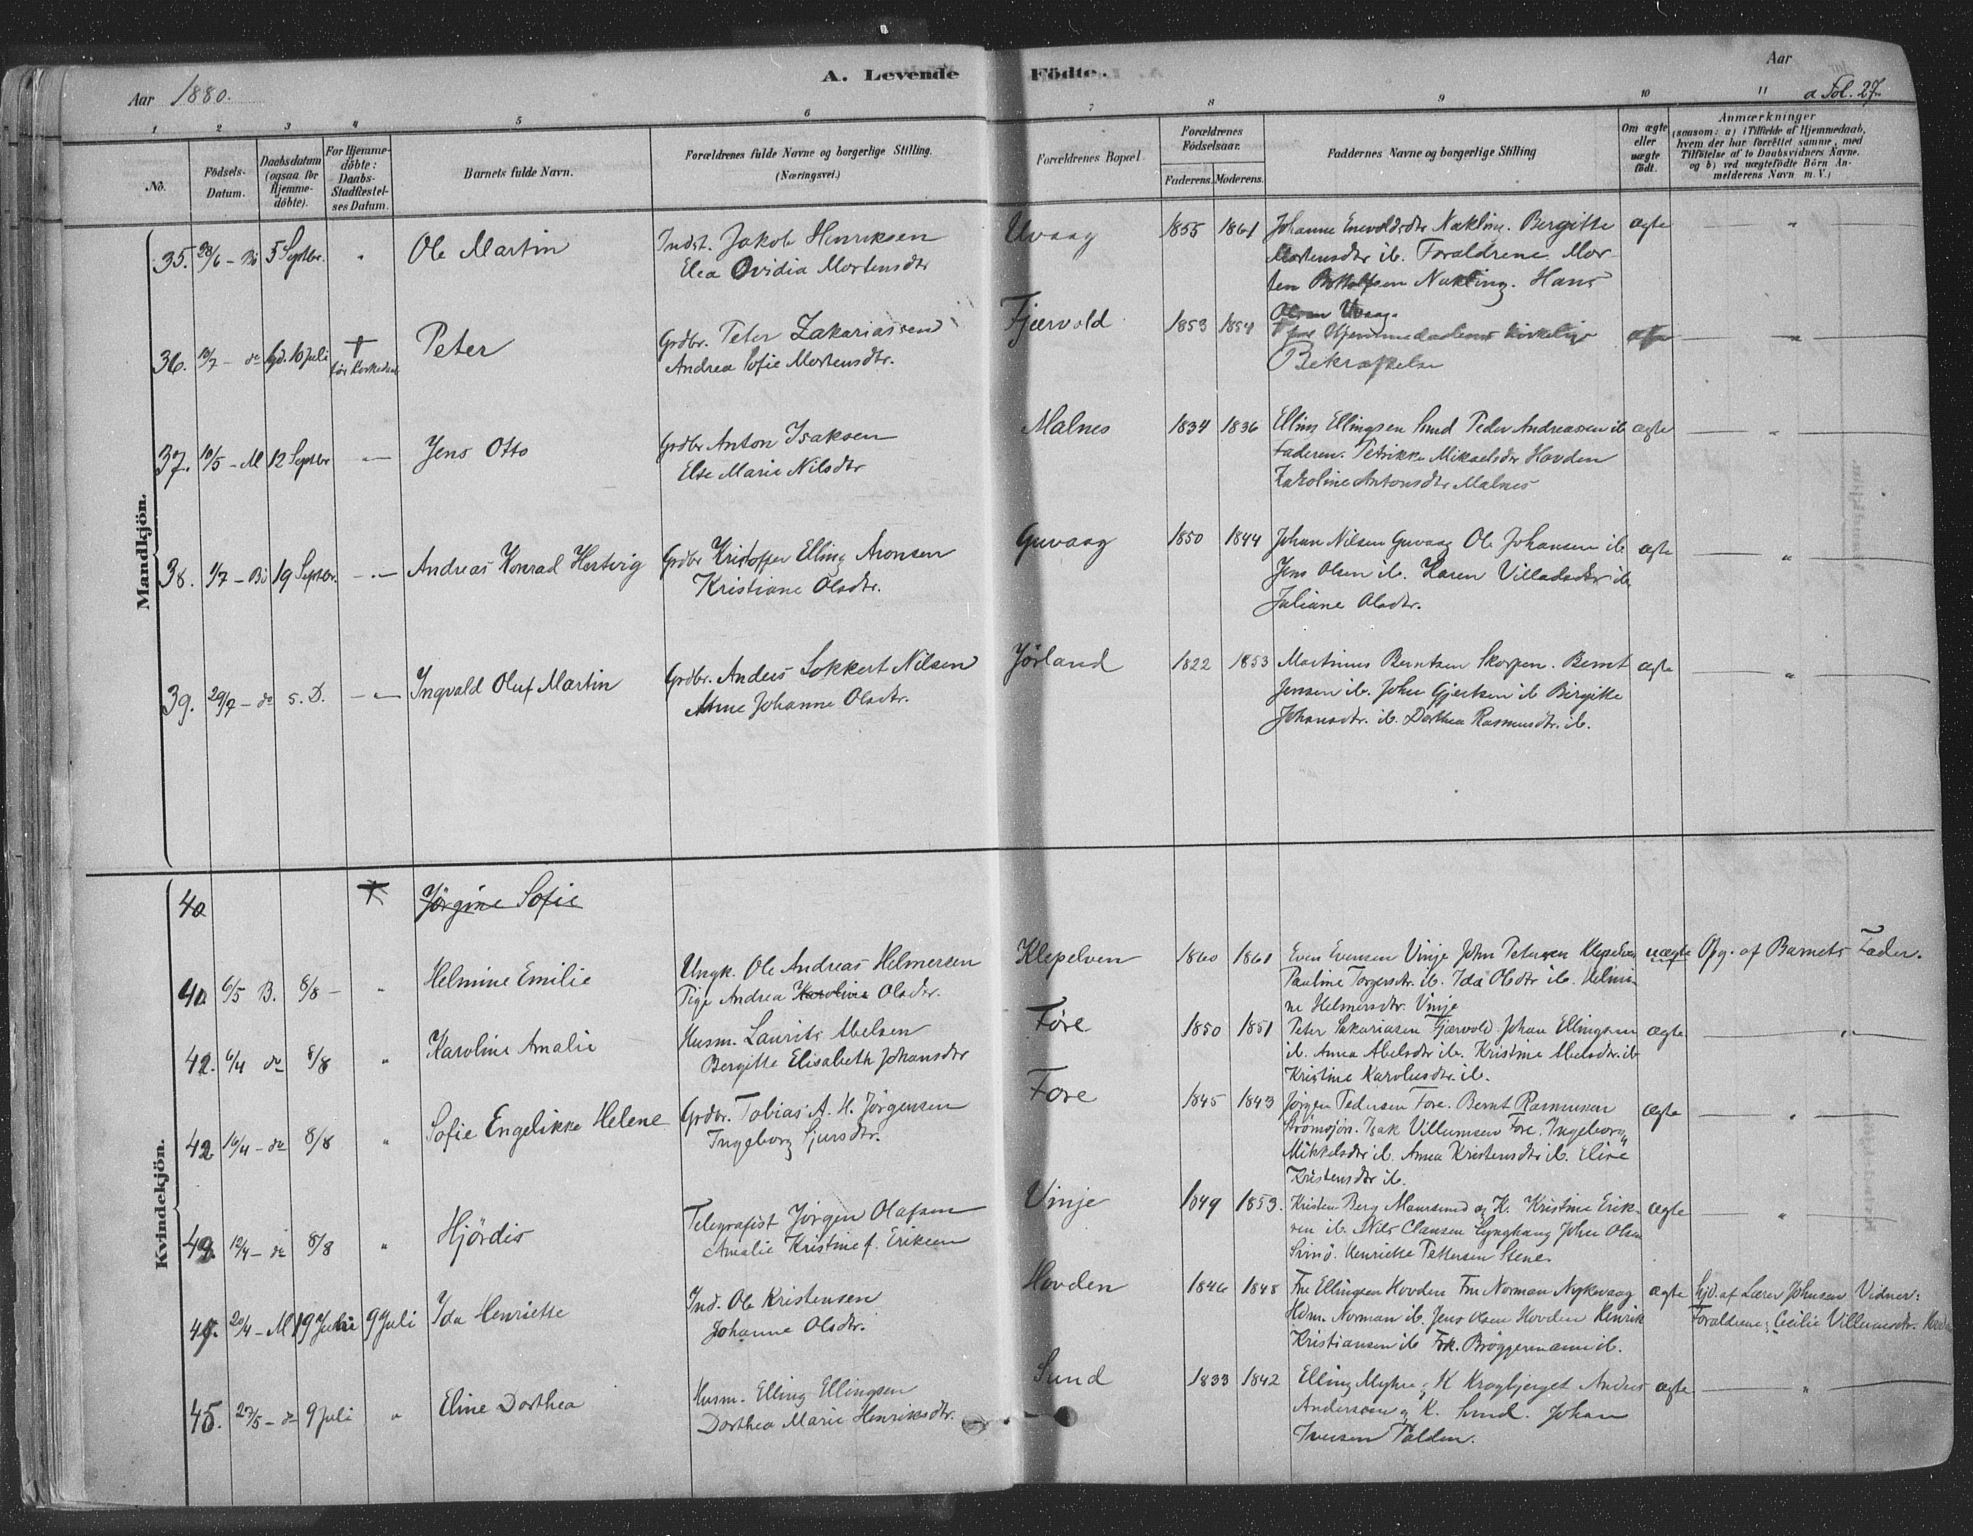 A. Levende Födte.
Aar 1880.
Aar
a Fol. 27.
1 2 3 4 5 6 7 8 9 10 11
No.
Födsels-Datum.
Daabsdatum (ogsaa for Hjemme-döbte).
For Hjemme-döbte: Daabs-Stadfæstel-ses Datum.
Barnets fulde Navn.
Forældrenes fulde Navne og borgerlige Stilling. (Næringsvei.)
Forældrenes Bopæl.
Forældrenes Födselsaar. Faderens. Moderens.
Faddernes Navne og borgerlige Stilling
Om ægte eller uægte födt.
Anmærkninger
(saasom: a) i Tilfælde af Hjemmedaab,
hvem der har forrettet samme, med
Tilföielse af to Daabsvidners Navne.
og b) ved uægtefödte Börn An-
melderens Navn m. V.)
Mandkjön.
35. 28/6 - Bö 5 Septbr. " Ole Martin
Indst. Jakob Henriksen
Elea Ovidia Mortensdtr
Uvaag 1855 1861
Johanne Enevoldsdtr Nukling. Bergitte
Mortensdtr ib. Forældrene. Mor-
ten Nukling. Hans
Olsen Uvaag.
ægte "
36. 10/7 - do Gd. 10 Juli † før Kirkedaab Peter
Grdbr. Peter Zakariassen
Andrea Sofie Mortensdtr.
Fjærvold 1853 1854
† før Hjemmedaabens kirkelige
Bekræftelse
ægte "
37. 10/5 - M 12 Septbr " Jens Otto
Grdbr Anton Isaksen
Else Marie Nilsdtr
Malnes 1834 1836
Elling Ellingsen Sund Peder Andreasen ib
Faderen. Petrikke Mikaelsdtr Hovden
Karoline Antonsdtr Malnes
ægte "
38. 1/7 - Bö 19 Septbr. " Andreas Konrad Hertvig
Grdbr Kristoffer Elling Aronsen
Kristiane Olsdtr.
Guvaag 1850 1844
Johan Nilsen Guvaag Ole Johansen ib.
Jens Olsen ib. Karen Villadsdtr ib
Juliane Olsdtr.
ægte "
39. 29/7 - do s. D. " Ingvald Oluf Martin
Grdbr. Anders Lokkert Nilsen
Anne Johanne Olsdtr.
Jörland 1822 1853
Martinus Berntsen Skorpen. Bernt
Jensen ib. John Gjertsen ib Birgitte
Johansdtr. ib. Dorthea Rasmusdtr. ib.
ægte "
Kvindekjön.
40 † Jörgine Sofie
40 6/5 B. 8/8 - " Helmine Emilie
Ungk. Ole Andreas Helmersen
Pige Andrea Karoline Olsdtr.
Klepelven 1860 1861
Even Evensen Vinje John Petersen Klepelven
Pauline Torgersdtr. ib. Ida Olsdtr ib. Helmi-
ne Helmersdtr. Vinje
uægte Opg. af Barnets Fader.
42. 6/4 do 8/8 " Karoline Amalie
Husm. Laurits Abelsen
Bergitte Elisabeth Johansdtr
Føre 1850 1851
Peter Sakariasen Fjærvold. Johan Ellingsen
ib. Anna Abelsdtr ib. Kristine Abelsdtr. ib
Kristine Karolusdtr. ib.
ægte "
42 16/4 - do 8/8 " Sofie Engelikke Helene
Grdbr. Tobias A. H. Jörgensen
Ingeborg Sjursdtr.
Føre 1845 1843
Jörgen Pedersen Føre. Bernt Rasmussen
Strömsjön. Isak Villumsen Føre. Ingeborg
Mikkelsdtr ib. Anna Kristensdtr ib. Elise
Kristensdtr ib.
ægte "
43 12/4 - do 8/8 " Hjördis
Telegrafist Jörgen Olafsen
Amalie Kristine f. Eriksen
Vinje 1849 1853.
Kristen Berg Maursund og K. Kristine Erik-
sen ib. Nils Clausen John Olsen
Svinö. Henriette Pettersen Stene.
ægte "
44. 20/4 - M 19 Juli 9 Juli Ida Henriette
Ind. Ole Kristensen
Johanne Olsdtr.
Hovden 1846 1848
Fru Ellingsen Hovden Fru Norman Nykvaag
Hdm. Norman ib. Jens Olsen Hovden Henrik
Kristiansen ib Frk. Bröggermann ib.
ægte
Hjd. af Lærer Johnsen Vidner:
Forældrene, Cecilie Villumsdtr.
45. 27/5 - do 9 Juli " Eline Dorthea
Husm. Elling Ellingsen
Dorthea Marie Henriksdtr.
Sund 1833 1842
Elling Myhre og K Kragbjerget Anders
Andersen og K. Sund. Johan
Iversen Tolden.
ægte "